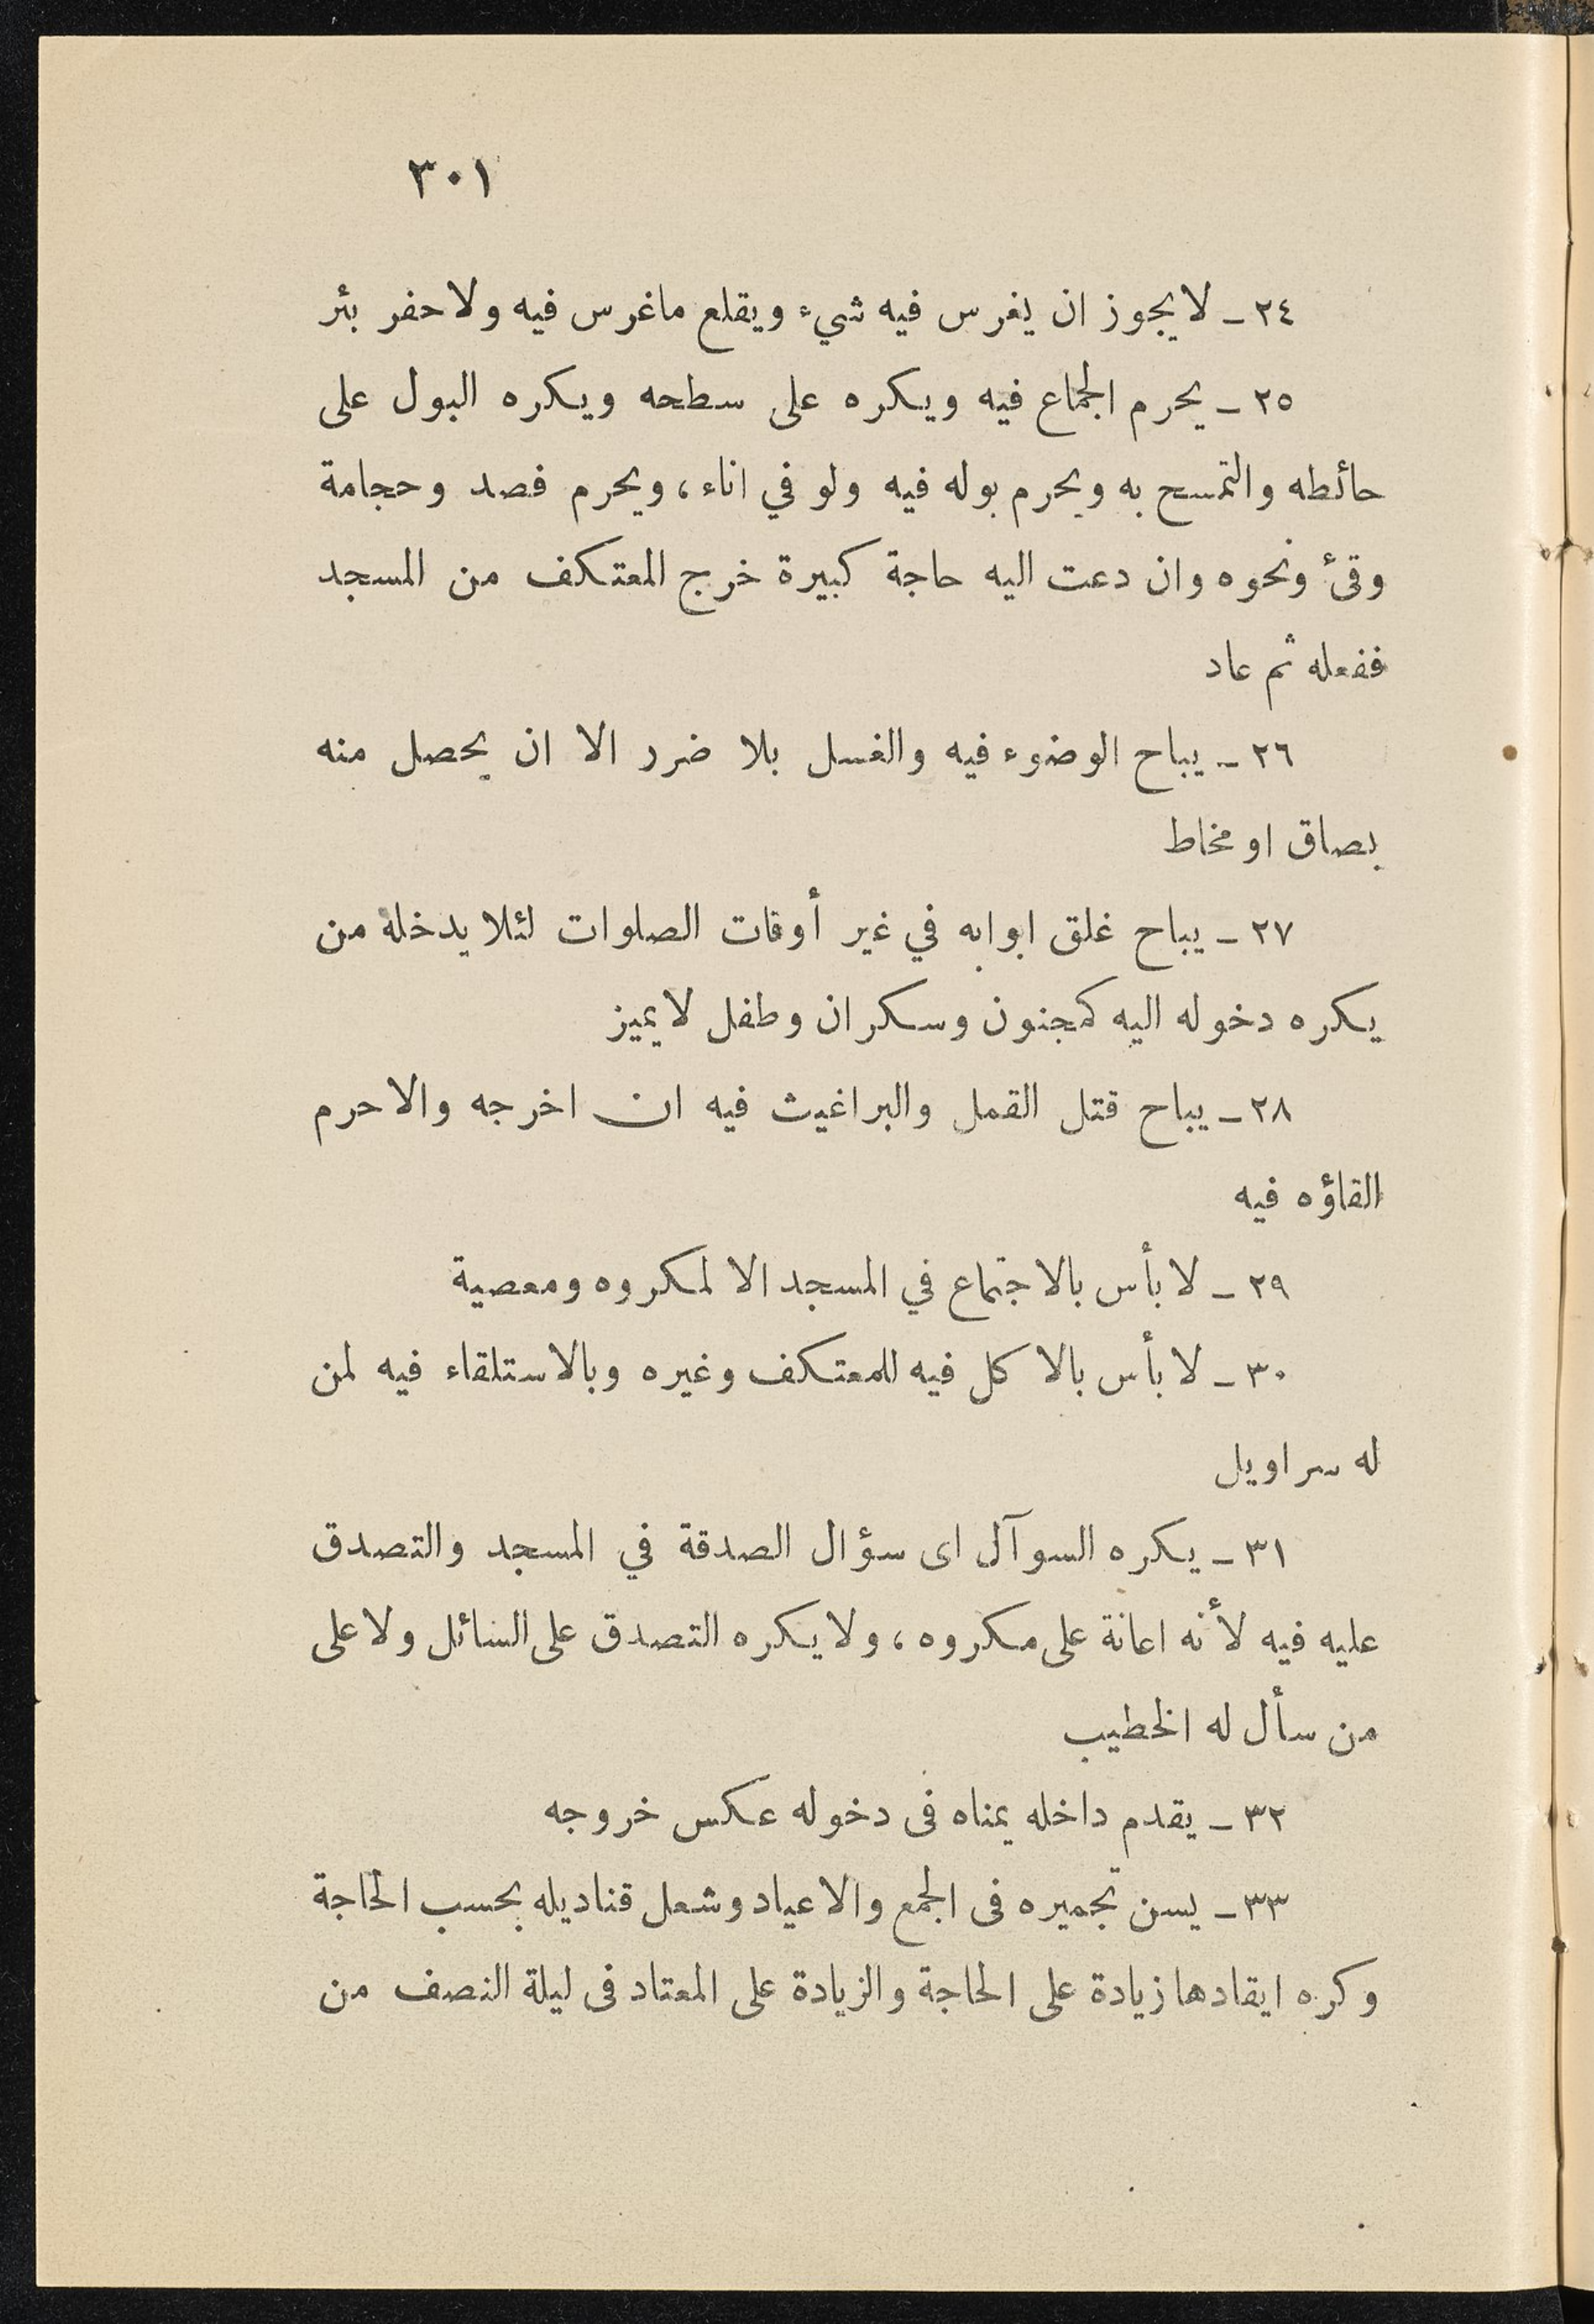 ٣٠١
٢٤ ـ لا يجوز ان يغرس فيه شيء ويقلع ماغرس فيه ولا حفر بئر
٢٥ ـ يحرم الجماع فيه ويكره على سطحه ويكره البول على
حائطه والتمسح به ويحرم بوله فيه ولو في اناء، ويحرم فصد وحجامة
وقئ ونحوه وان دعت اليه حاجة كبيرة خرج المعتكف من المسجد
ففعله ثم عاد
٢٦ ـ يباح الوضوء فيه والغسل بلا ضرر الا ان يحصل منه
بصاق او مخاط
٢٧ ـ يباح غلق ابوابه في غير أوقات الصلوات لئلا يدخله من
يكره دخوله اليه كمجنون وسكران وطفل لا يميز
٢٨ ـ يباح قتل القمل والبراغيث فيه ان اخرجه والا حرم
القاؤه فيه
٢٩ ـ لا بأس بالاجتماع في المسجد الا لمكروه ومعصية
٣٠ ـ لا بأس بالاكل فيه للمعتكف وغيره وبالاستلقاء فيه لمن
له سراويل
٣١ ـ يكره السوآل اى سؤال الصدقة في المسجد والتصدق
عليه فيه لأنه اعانة على مكروه، ولا يكره التصدق على السائل ولا على
من سأل له الخطيب
٣٢ ـ يقدم داخله يمناه فى دخوله عكس خروجه
٣٣ ـ يسن تجميره فى الجمع والاعياد وشعل قناديله بحسب الحاجة
وكره ايقادها زيادة على الحاجة والزيادة على المعتاد فى ليلة النصف من